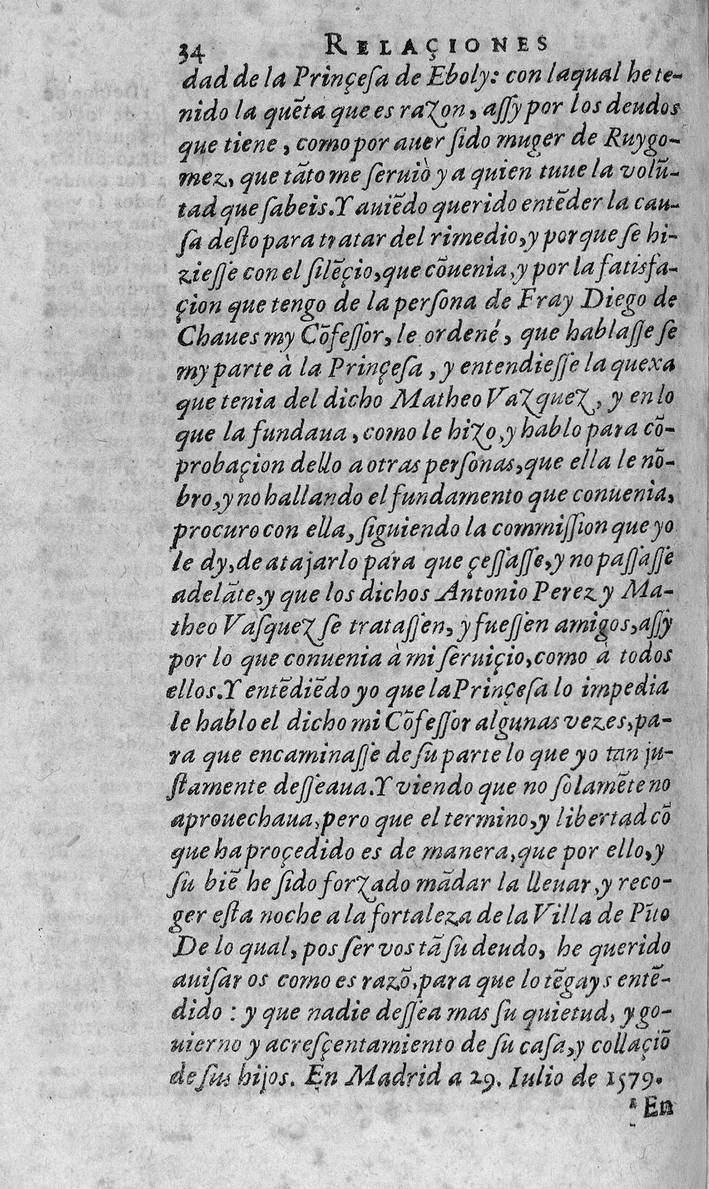 34 RELAÇIONES
dad de la Prinçeſa de Eboly: con laqual he te-
nido la quẽta que es razon, aſſy por los deudos
que tiene, como por auer ſido muger de Ruygo-
mez, que tãto me ſeruiò y a quien tuue la volũ-
tad que ſabeis. Y auiẽdo querido entẽder la cau-
ſa deſto para tratar del rimedio, y porque ſe hi-
zieſſe con el ſilẽçio, que cõuenia, y por la fatisfa-
çion que tengo de la perſona de Fray Diego de
Chaues my Cõfeſſor, le ordené, que hablaſſe ſe
my parte à la Prinçeſa, y entendieſſe la quexa
que tenia del dicho Matheo Vazquez, y en lo
que la fundaua, como le hizo, y hablo para cõ-
probaçion dello a otras perſonas, que ella le nõ-
bro, y no hallando el fundamento que conuenia,
procuro con ella, ſiguiendo la commiſſion que yo
le dy, de atajarlo para que çeſſaſſe, y no paſſaſſe
adelãte, y que los dichos Antonio Perez y Ma-
theo Vaſquez ſe trataſſen, y fueſſen amigos, aſſy
por lo que conuenia à mi ſeruiçio, como à todos
ellos. Y entẽdiẽdo yo que la Prinçeſa lo impedia
le hablo el dicho mi Cõfeſſor algunas vezes, pa-
ra que encaminaſſe de ſu parte lo que yo tan ju-
ſtamente deſſeaua. Y viendo que no ſolamẽte no
aprouechaua, pero que el termino, y libertad cõ
que ha proçedido es de manera, que por ello, y
ſu biẽ he ſido forzado mãdar la lleuar, y reco-
ger eſta noche a la fortaleza de la Villa de Pĩto
De lo qual, pos ſer vos tã ſu deudo, he querido
auiſar os como es razõ, para que lo tẽgays entẽ-
dido : y que nadie deſſea mas ſu quietud, y go-
uierno y acreſçentamiento de ſu caſa, y collaçiõ
de ſus hijos. En Madrid a 29. Iulio de 1579.
En